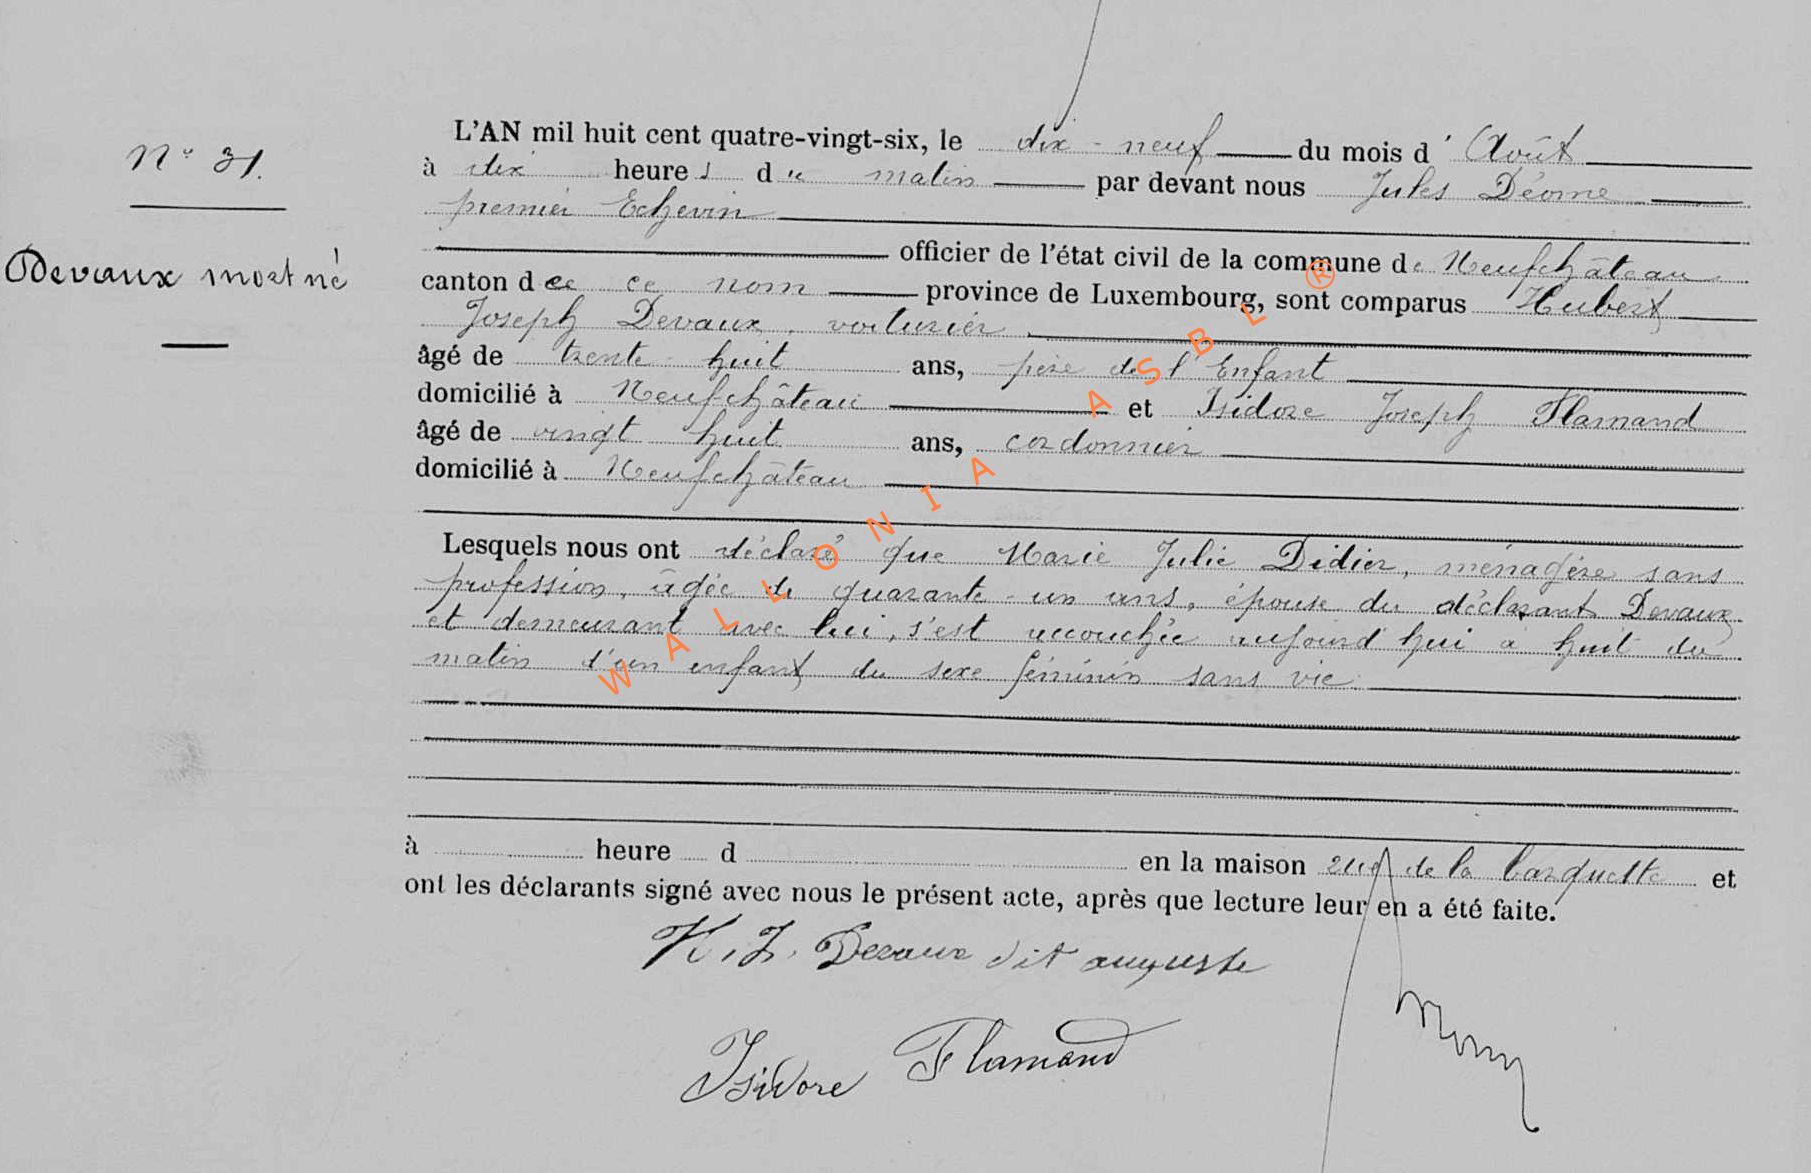 N° 31.
Devaux mort né
L'AN mil huit cent quatre-vingt-six, le dix-neuf du mois d' Août
à dix heures du matin par devant nous Jules Déome
premier Echevin
officier de l'état civil de la commune de Neufchâteau
canton de ce nom province de Luxembourg, sont comparus Hubert
Joseph Devaux, voiturier,
âgé de trente huit ans, père de l'Enfant
domicilié à Neufchâteau et Isidore Joseph Flamand
âgé de vingt huit ans, cordonnier
domicilié à Neufchâteau
Lesquels nous ont déclaré que Marie Julie Didier, ménagère sans
profession, âgée de quarante-un ans, épouse du déclarant Devaux
et demeurant avec lui, s'est accouchée aujourd'hui à huit du
matin d'un enfant du sexe féminin sans vie.
à heure d en la maison rue de la barquette et
ont les déclarants signé avec nous le présent acte, après que lecture leur en a été faite.
H. J. Devaux dit auguste
Isidore Flamand
WALLONIA ASBL ®